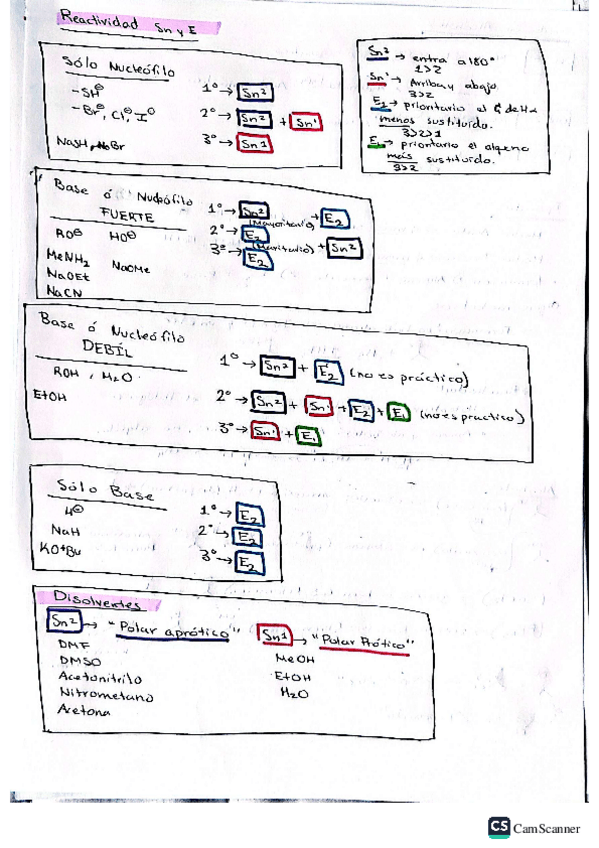 Reactividad Sn y E
Sólo Nucleófilo
-SH⊖
-Br⊖, Cl⊖, I⊖
NaSH, NaBr
1º → Sn2
2º → Sn2 + Sn1
3º → Sn1
Sn2 → entra a 180º
1>2
Sn1 → Arriba y abajo
3>2
E2 → prioritario el C de Hα
menos sustituído.
3>2>1
E1 → prioritario el alqueno
más sustituído.
3>2
Base ó Nucleófilo
FUERTE
RO⊖ HO⊖
MeNH2
NaOMe
NaOEt
NaCN
1º → Sn2 (Mayoritario) + E2
2º → E2 (Maritario) + Sn2
3º → E2
Base ó Nucleófilo
DEBÍL
ROH, H2O
EtOH
1º → Sn2 + E2 (no es práctico)
2º → Sn2 + Sn1 + E2 + E1 (no es practico)
3º → Sn1 + E1
Sólo Base
H⊖
NaH
KOtBu
1º → E2
2º → E2
3º → E2
Disolventes
Sn2 → "Polar aprótico"
DMF
DMSO
Acetonitrilo
Nitrometano
Acetona
Sn1 → "Polar Prótico"
MeOH
EtOH
H2O
CS CamScanner